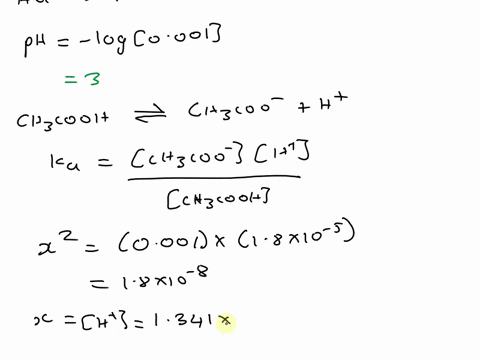 pH = -log[0.001]
= 3
CH3COOH ⇌ CH3COO⁻ + H⁺
ka = [CH3COO⁻] [H⁺]
[CH3COOH]
x² = (0.001) × (1.8×10⁻⁵)
= 1.8×10⁻⁸
x = [H⁺] = 1.341 ×